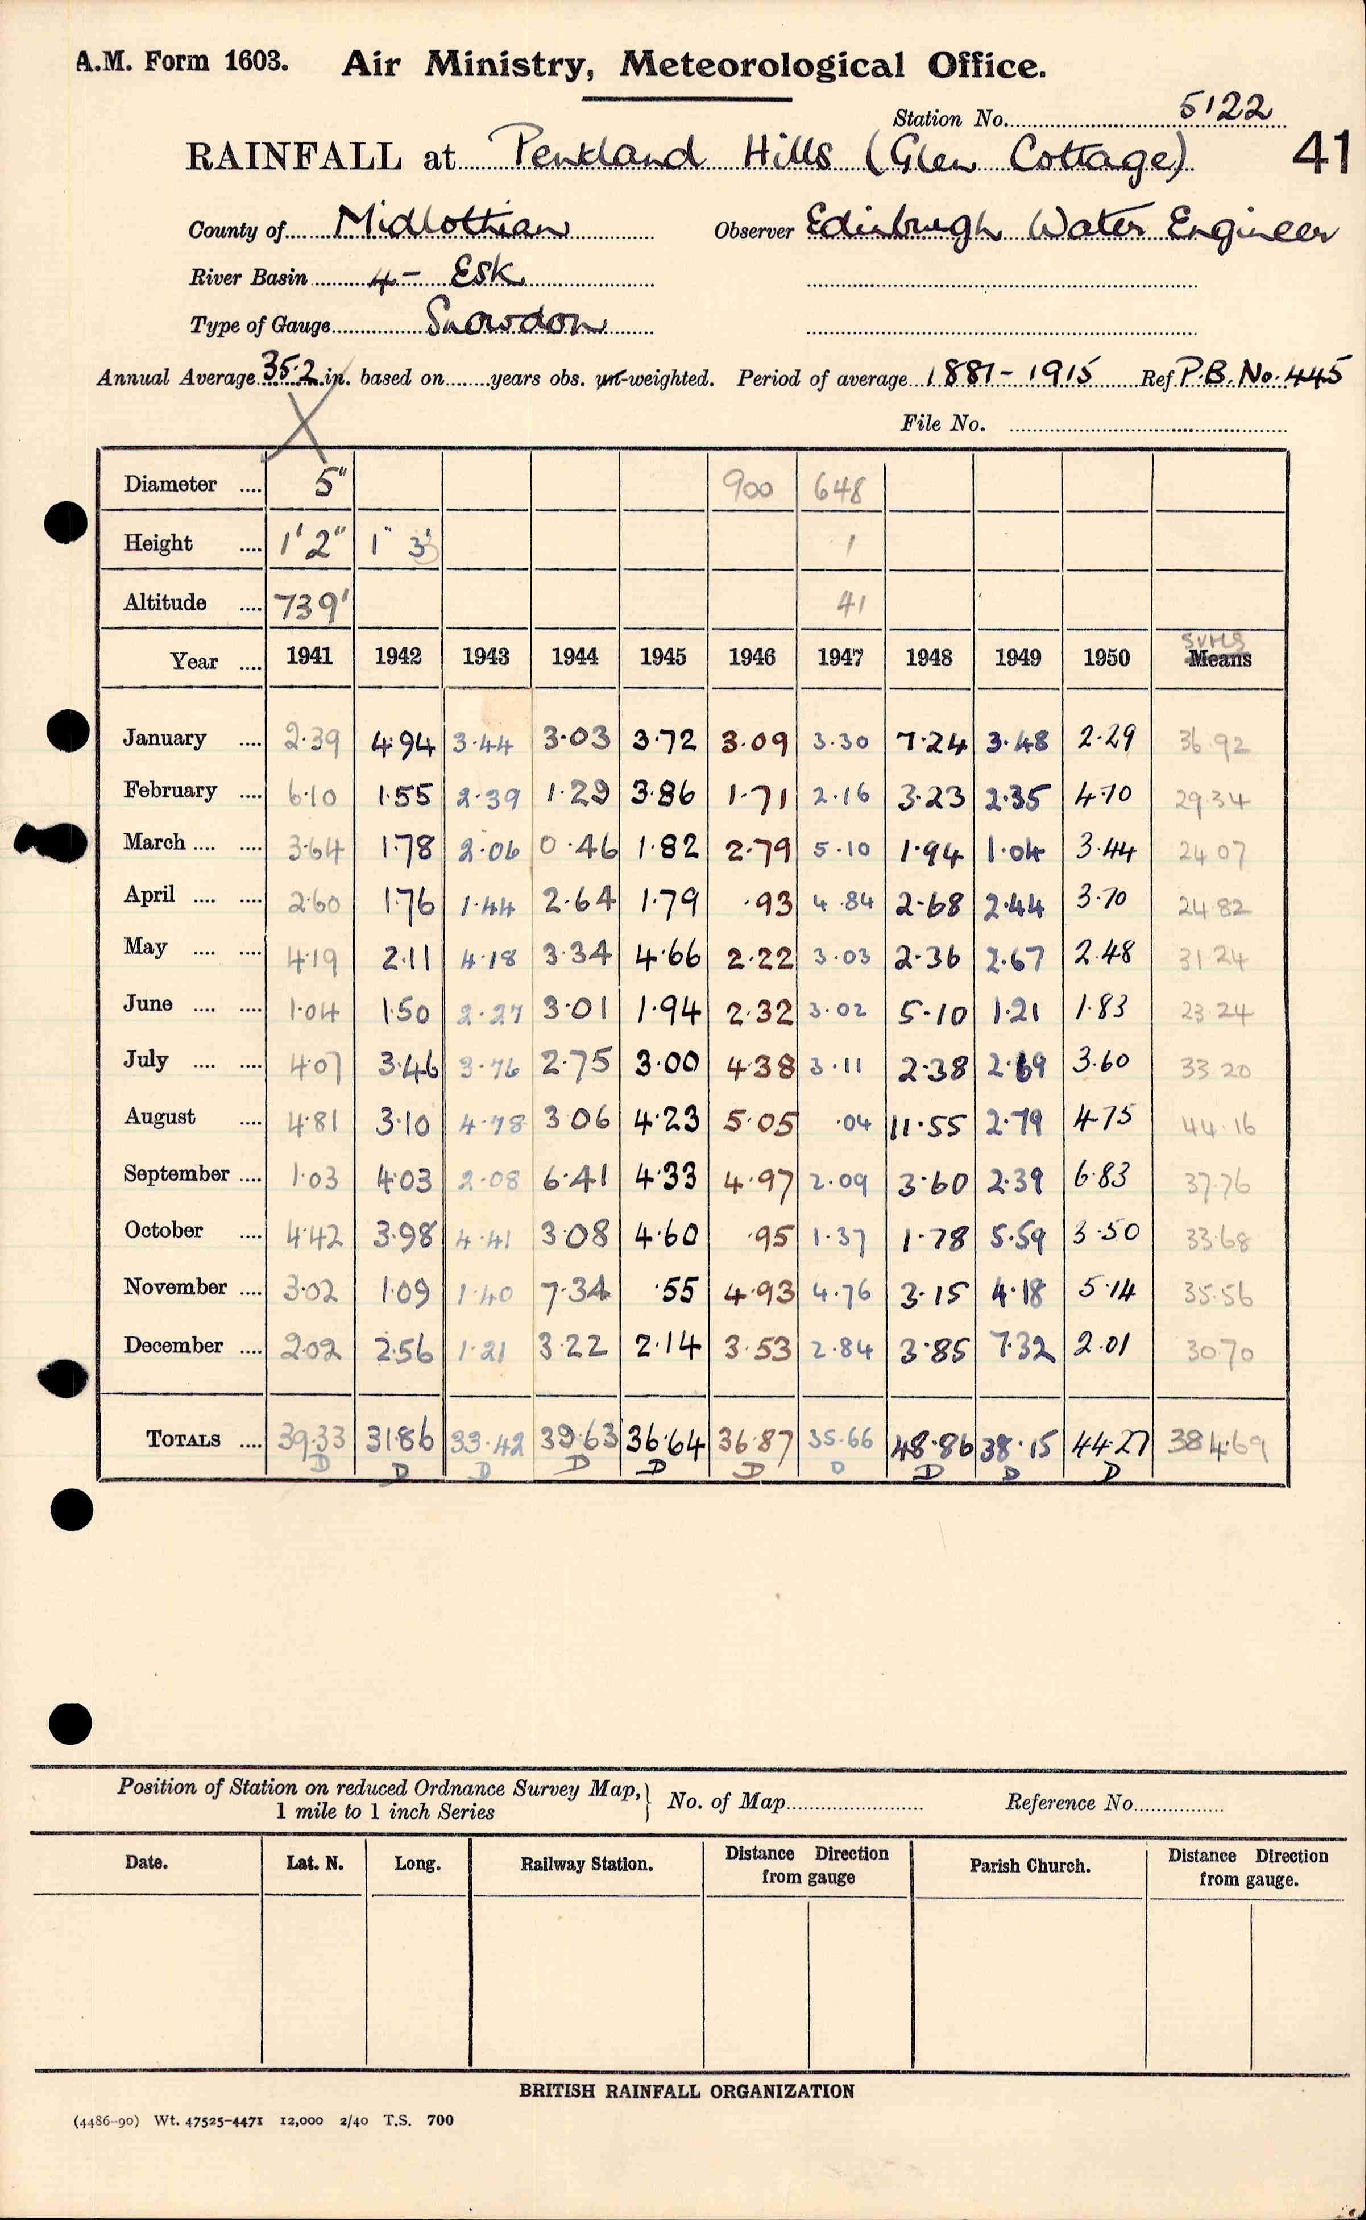 A.M. Form 1603. Air Ministry, Meteorological Office.
Station No. 5122
RAINFALL at Pentland Hills (Glen Cottage) 41
County of Midlothian Observer Edinburgh Water Engineer
River Basin 4 - Esk
Type of Gauge Snowdon
Annual Average 35.2 in. based on years obs. un-weighted. Period of average 1881-1915 Ref P.B. No. 445
File No.
Diameter .... 5" 900 648
Height .... 1' 2" 1" 3' 1
Altitude .... 739' 41
SUMS
Year .... 1941 1942 1943 1944 1945 1946 1947 1948 1949 1950 Means
January .... 2.39 4.94 3.44 3.03 3.72 3.09 3.30 7.24 3.48 2.29 36.92
February .... 6.10 1.55 2.39 1.29 3.86 1.71 2.16 3.23 2.35 4.70 29.34
March .... .... 3.64 1.78 2.06 0.46 1.82 2.79 5.10 1.94 1.04 3.44 24.07
April .... .... 2.60 1.76 1.44 2.64 1.79 .93 4.84 2.68 2.44 3.70 24.82
May .... .... 4.19 2.11 4.18 3.34 4.66 2.22 3.03 2.36 2.67 2.48 31.24
June .... .... 1.04 1.50 2.27 3.01 1.94 2.32 3.02 5.10 1.21 1.83 23.24
July .... .... 4.07 3.46 3.76 2.75 3.00 4.38 3.11 2.38 2.69 3.60 33.20
August .... 4.81 3.10 4.78 3.06 4.23 5.05 .04 11.55 2.79 4.75 44.16
September .... 1.03 4.03 2.08 6.41 4.33 4.97 2.09 3.60 2.39 6.83 37.76
October .... 4.42 3.98 4.41 3.08 4.60 .95 1.37 1.78 5.59 3.50 33.68
November .... 3.02 1.09 1.40 7.34 .55 4.93 4.76 3.15 4.18 5.14 35.56
December .... 2.02 2.56 1.21 3.22 2.14 3.53 2.84 3.85 7.32 2.01 30.70
TOTALS .... 39.33 31.86 33.42 39.63 36.64 36.87 35.66 48.86 38.15 44.27 384.69
D D D D D D D D D D
Position of Station on reduced Ordnance Survey Map,} No. of Map Reference No.
1 mile to 1 inch Series
Date. Lat. N. Long. Railway Station. Distance Direction from gauge Parish Church. Distance Direction from gauge.
BRITISH RAINFALL ORGANIZATION
(4486-90) Wt. 47525-4471 12,000 2/40 T.S. 700